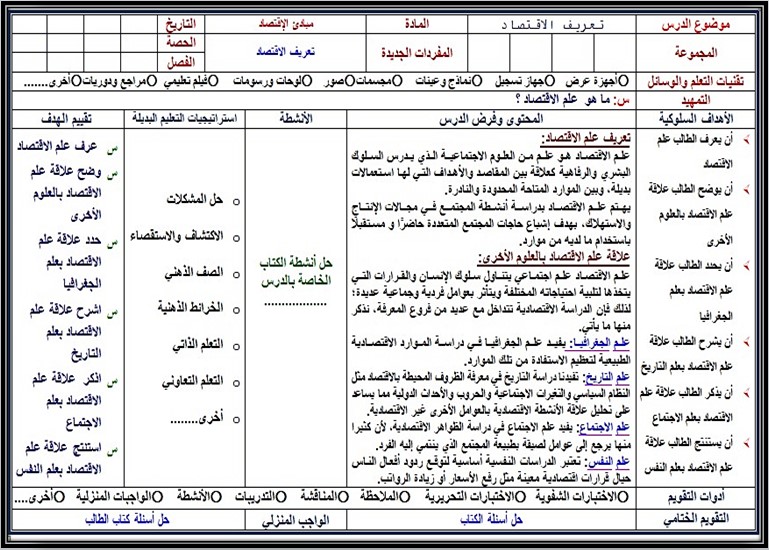 موضوع الدرس تعريف الاقتصاد المادة مبادئ الإقتصاد التاريخ
المجموعة المفردات الجديدة تعريف الاقتصاد الحصة
الفصل
تقنيات التعلم والوسائل O أجهزة عرض O جهاز تسجيل O نماذج وعينات O مجسمات O صور O لوحات ورسومات O فيلم تعليمي O مراجع ودوريات O أخرى........
التمهيد س: ما هو علم الاقتصاد ؟
الأهداف السلوكية المحتوى وفرض الدرس الأنشطة استراتيجيات التعليم البديلة تقييم الهدف
أن يعرف الطالب علم
الاقتصاد
أن يوضح الطالب علاقة
علم الاقتصاد بالعلوم
الأخرى
أن يحدد الطالب علاقة
علم الاقتصاد بعلم
الجغرافيا
أن يشرح الطالب علاقة
علم الاقتصاد بعلم التاريخ
أن يذكر الطالب علاقة علم
الاقتصاد بعلم الاجتماع
أن يستنتج الطالب علاقة
علم الاقتصاد بعلم النفس
تعريف علم الاقتصاد:
علم الاقتصاد هو علم من العلوم الاجتماعية الذي يدرس السلوك
البشري والرفاهية كعلاقة بين المقاصد والأهداف التي لها استعمالات
بديلة، وبين الموارد المتاحة المحدودة والنادرة.
يهتم علم الاقتصاد بدراسة أنشطة المجتمع في مجالات الإنتاج
والاستهلاك، بهدف إشباع حاجات المجتمع المتعددة حاضرًا و مستقبلًا
باستخدام ما لديه من موارد.
علاقة علم الاقتصاد بالعلوم الأخرى:
علم الاقتصاد علم اجتماعي يتناول سلوك الإنسان والقرارات التي
يتخذها لتلبية احتياجاته المختلفة ويتأثر بعوامل فردية وجماعية عديدة؛
لذلك فإن الدراسة الاقتصادية تتداخل مع عديد من فروع المعرفة، نذكر
منها ما يأتي.
علم الجغرافيا: يفيد علم الجغرافيا في دراسة الموارد الاقتصادية
الطبيعية لتعظيم الاستفادة من تلك الموارد.
علم التاريخ: تفيدنا دراسة التاريخ في معرفة الظروف المحيطة بالاقتصاد مثل
النظام السياسي والتغيرات الاجتماعية والحروب والأحداث الدولية مما يساعد
على تحليل علاقة الأنشطة الاقتصادية بالعوامل الأخرى غير الاقتصادية.
علم الاجتماع: يفيد علم الاجتماع في دراسة الظواهر الاقتصادية، لأن كثيرا
منها يرجع إلى عوامل لصيقة بطبيعة المجتمع الذي ينتمي إليه الفرد.
علم النفس: تعتبر الدراسات النفسية أساسية لتوقع ردود أفعال الناس
حيال قرارات اقتصادية معينة مثل رفع الأسعار أو زيادة الرواتب.
حل أنشطة الكتاب
الخاصة بالدرس
................
o حل المشكلات
o الاكتشاف والاستقصاء
o الصف الذهني
o الخرائط الذهنية
o التعلم الذاتي
o التعلم التعاوني
o أخرى........
س عرف علم الاقتصاد
س وضح علاقة علم
الاقتصاد بالعلوم
الأخرى
س حدد علاقة علم
الاقتصاد بعلم
الجغرافيا
س اشرح علاقة علم
الاقتصاد بعلم
التاريخ
س اذكر علاقة علم
الاقتصاد بعلم
الاجتماع
س استنتج علاقة علم
الاقتصاد بعلم النفس
أدوات التقويم O الاختبارات الشفوية O الاختبارات التحريرية O الملاحظة O المناقشة O التدريبات O الأنشطة O الواجبات المنزلية O أخرى....
التقويم الختامي حل أسئلة الكتاب الواجب المنزلي حل أسئلة كتاب الطالب